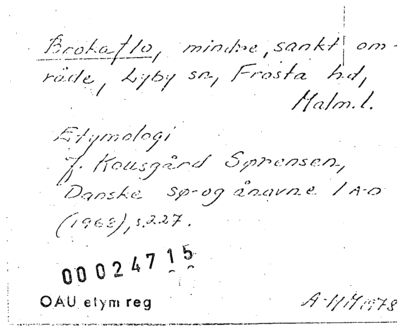 Brokaflo, mindre, sankt om-
råde, Lyby sn, Frosta hd,
Malm. l.
Etymologi
jf. Kousgård Sørensen,
Danske sø- og ånavne 1 A-D
(1968), s. 227.
00024715
OAU etym reg
A-HM 1978